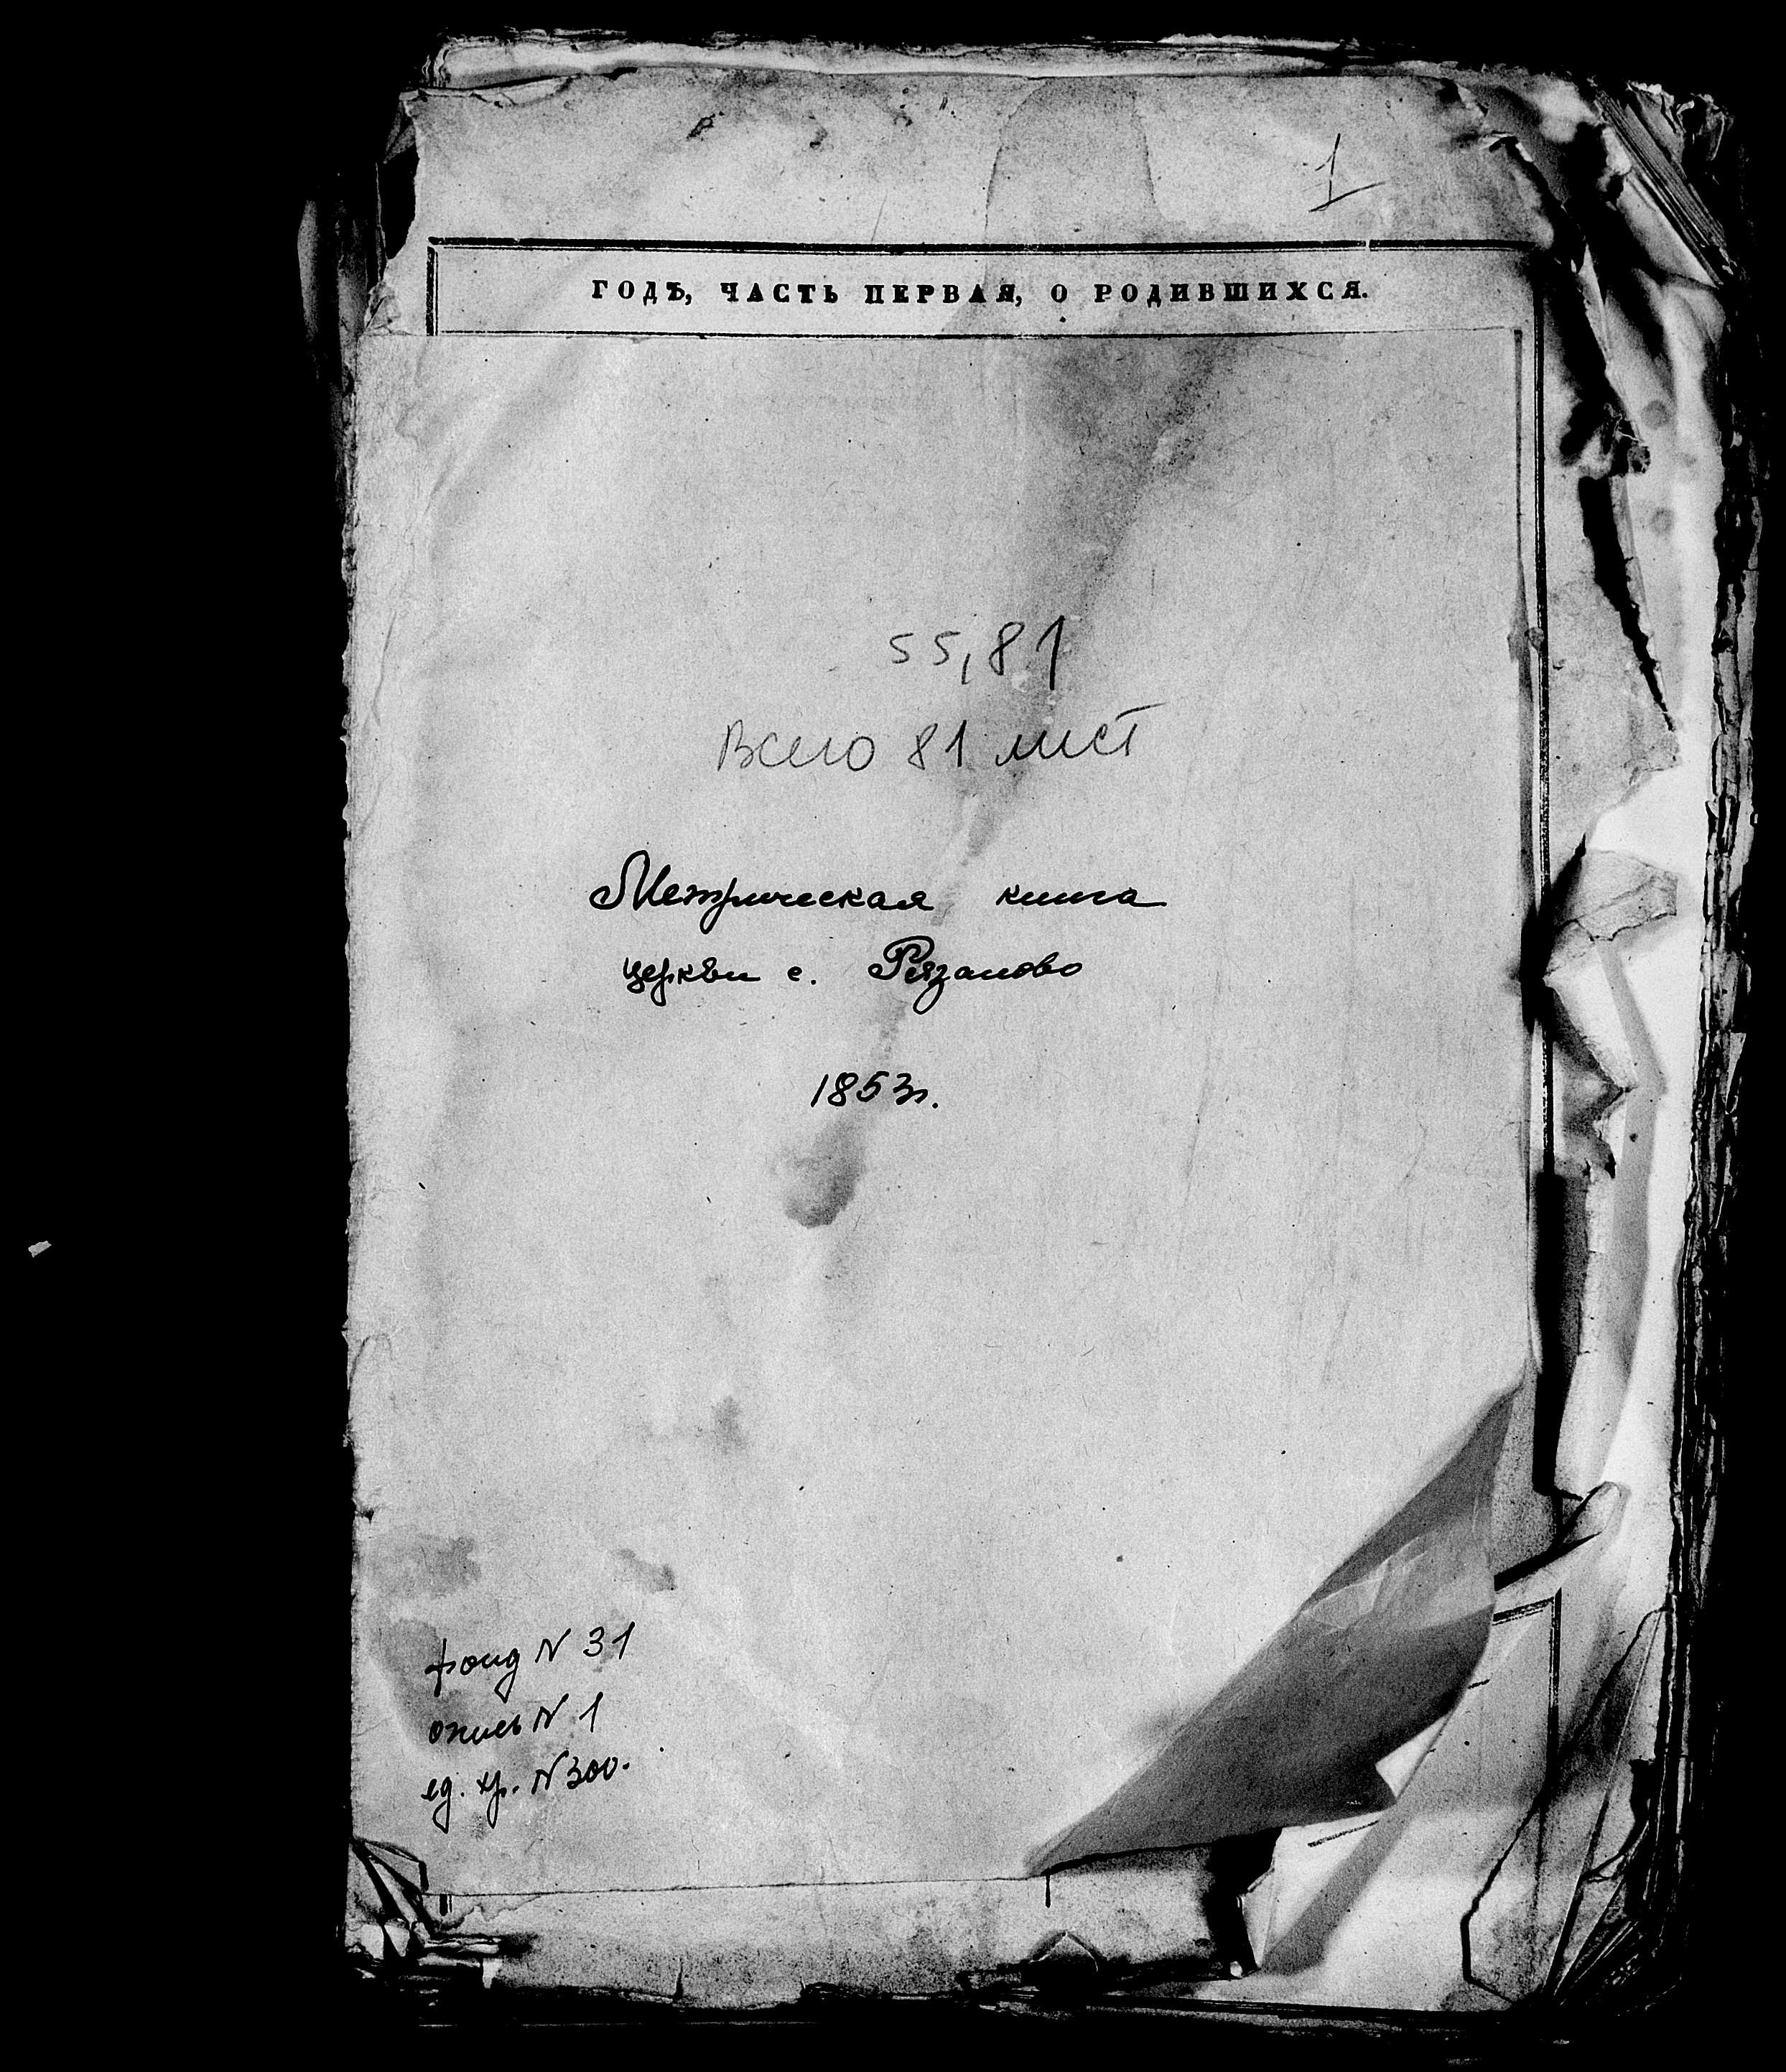 1
ГОДѢ, ЧАСТЬ ПЕРВАЯ, О РОДИВШИХСЯ.
55,81
Всего 81 лист
Метрическая книга
церкви с. Рязаново
1853г.
фонд N 31
опись N 1
ед. хр. N 300.